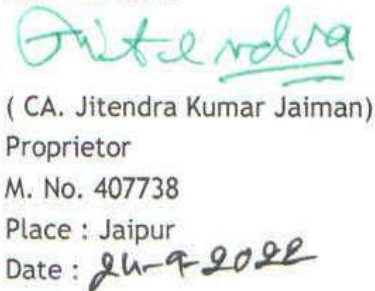 Jitendra
( CA. Jitendra Kumar Jaiman)
Proprietor
M. No. 407738
Place : Jaipur
Date : 24-9-2022